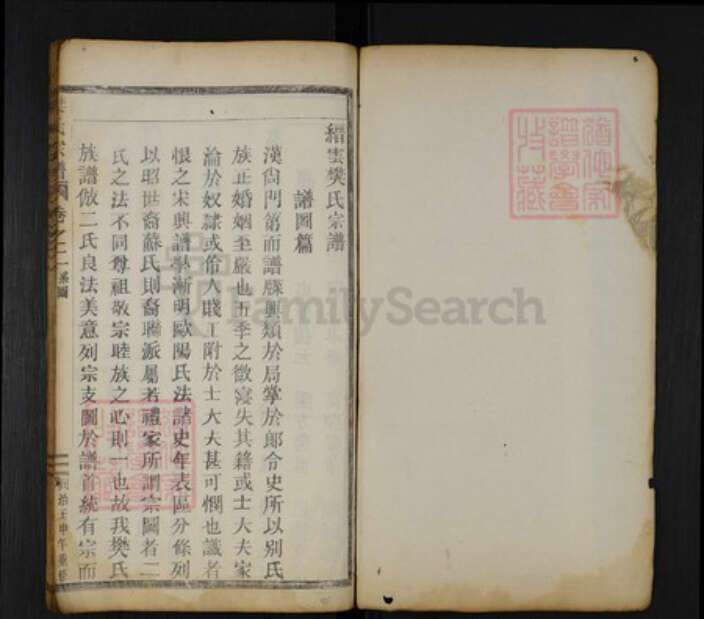 縉雲樊氏宗譜
譜圖篇
漢尙門第而譜牒興類於局掌於郞令史所以別氏
族正婚姻至嚴也五季之微寖失其籍或士大夫家
淪於奴隷或倍人賤工附於士大夫甚可憫也識者
恨之宋興譜學漸明歐陽氏法諸史年表區分條列
以昭世裔蘇氏則裔聯派屬若禮家所謂宗圖者二
氏之法不同尊祖敬宗睦族之心則一也故我樊氏
族譜倣二氏良法美意列宗支圖於譜首統有宗而
樊氏宗譜圖卷之二
系圖
同治壬申年重修
譜學會
收藏
FamilySearch